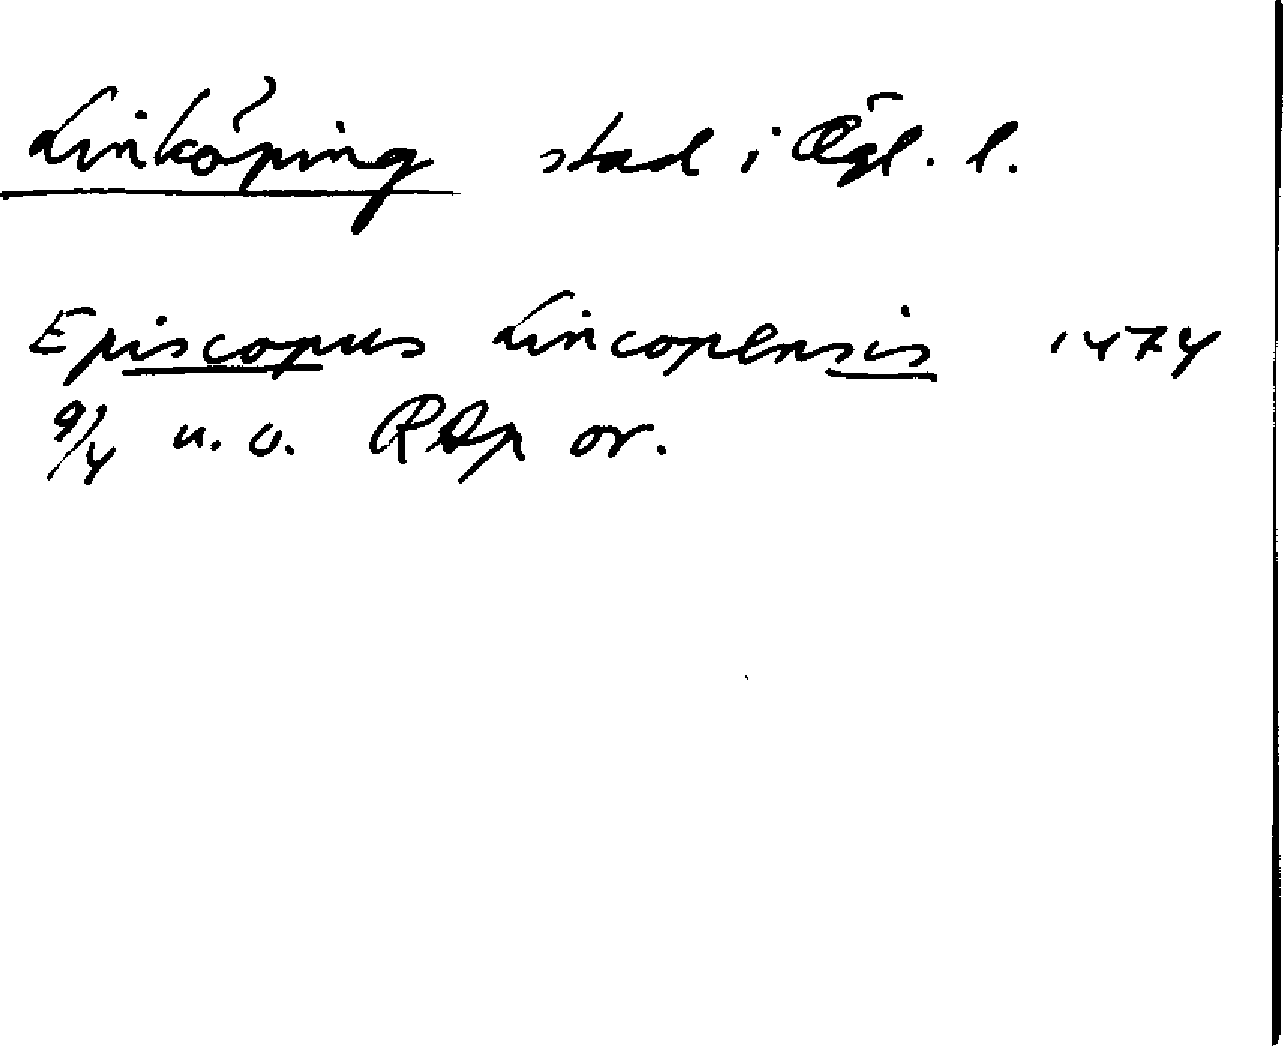 Linköping stad i Ögl. l.
Episcopus Lincopensis 1474
9/4 u. o. RAp or.